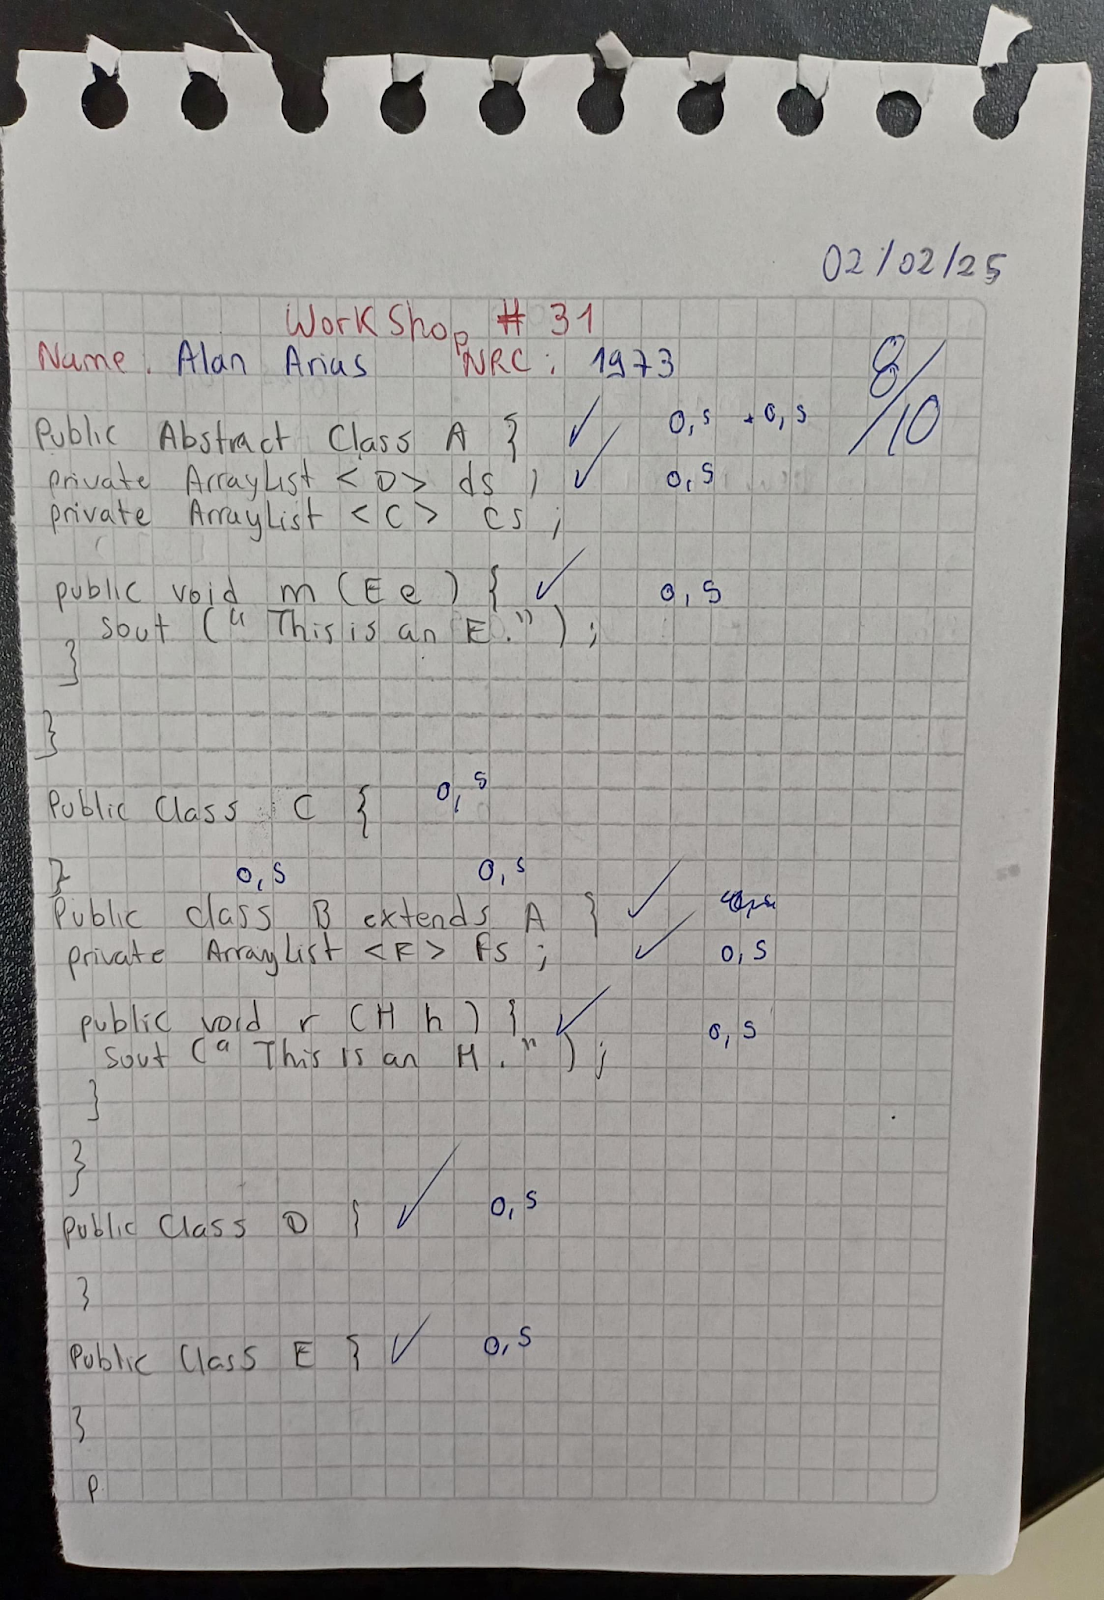 02/02/25
WorkShop # 31
Name. Alan Arias NRC: 1973
8/10
Public Abstract Class A { 0,5 + 0,5
private ArrayList <D> ds ; 0,5
private ArrayList <C> cs ;
public void m (E e) { 0,5
sout (" This is an E.") ;
}
}
Public Class C { 0,5
}
0,5 0,5
Public class B extends A {
private ArrayList <F> fs ; 0,5
public void r (H h) { 0,5
sout (" This is an H." ) ;
}
}
public Class D { 0,5
}
Public Class E { 0,5
}
P